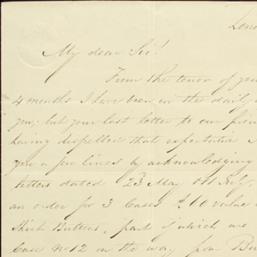 Lond
My dear Sir!
From the tenor of your
4 months I have been in the daily
you; but your last letter to our
having dispelled that expectation
you a few lines by acknowledging
letters dated 23 May
an order for 3 Cases £10 value
Shirt Buttons, part of which are
Case No 12 on the way from